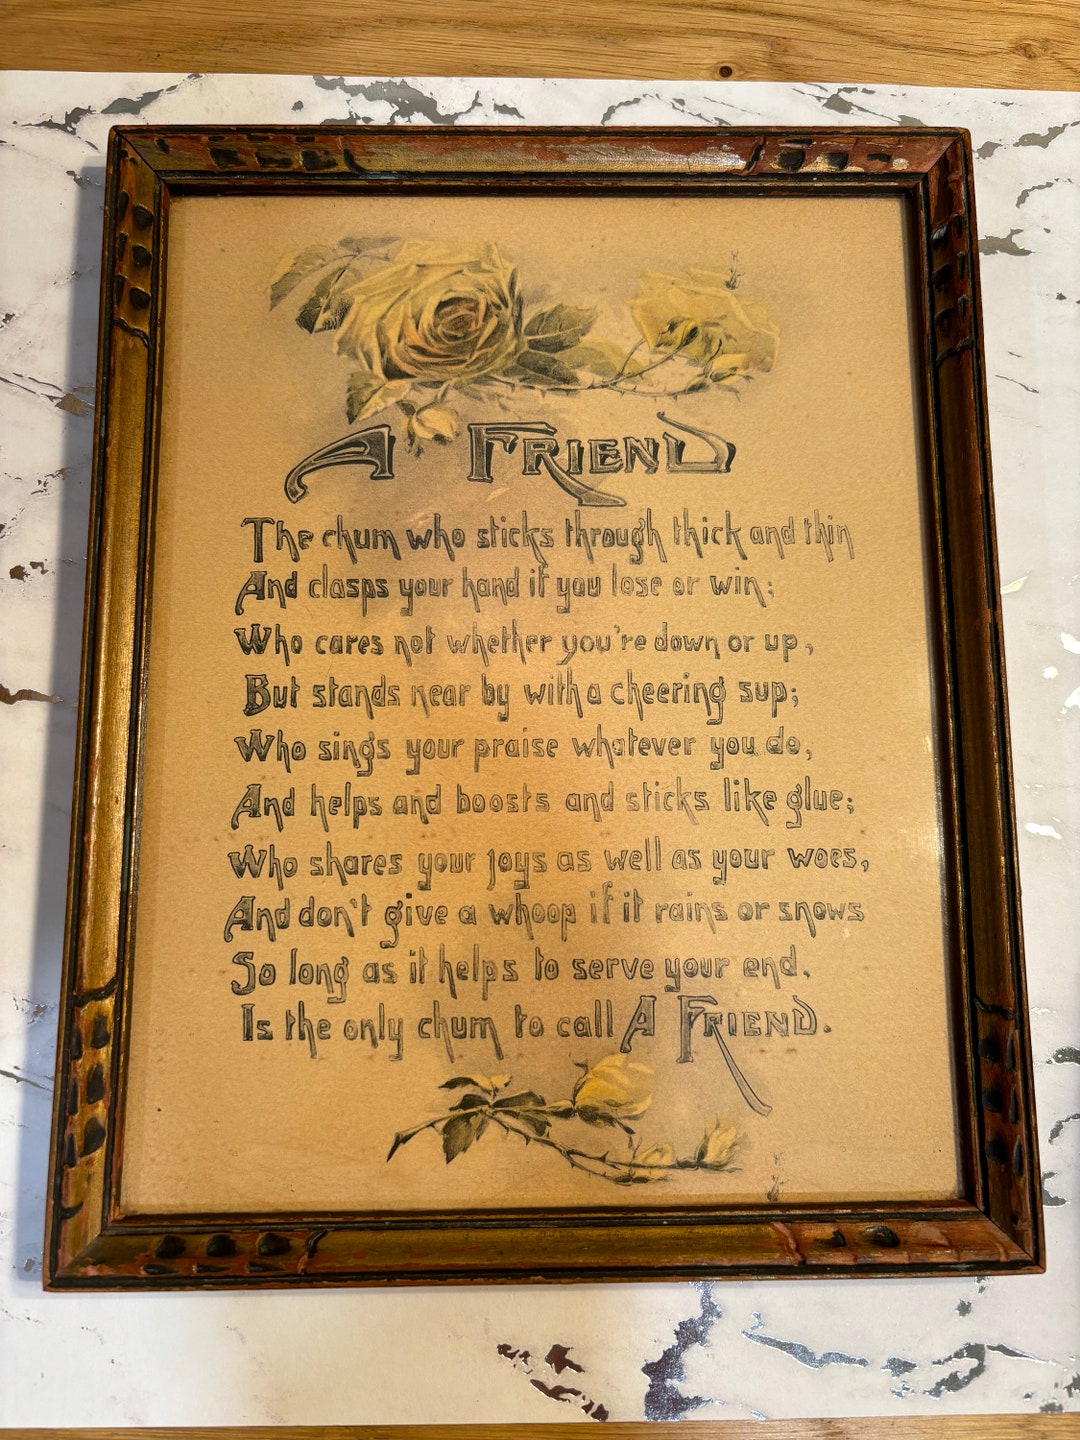 A FRIEND
The chum who sticks through thick and thin
And clasps your hand if you lose or win;
Who cares not whether you're down or up,
But stands near by with a cheering sup;
Who sings your praise whatever you do,
And helps and boosts and sticks like glue;
Who shares your joys as well as your woes,
And don't give a whoop if it rains or snows
So long as it helps to serve your end,
Is the only chum to call A FRIEND.